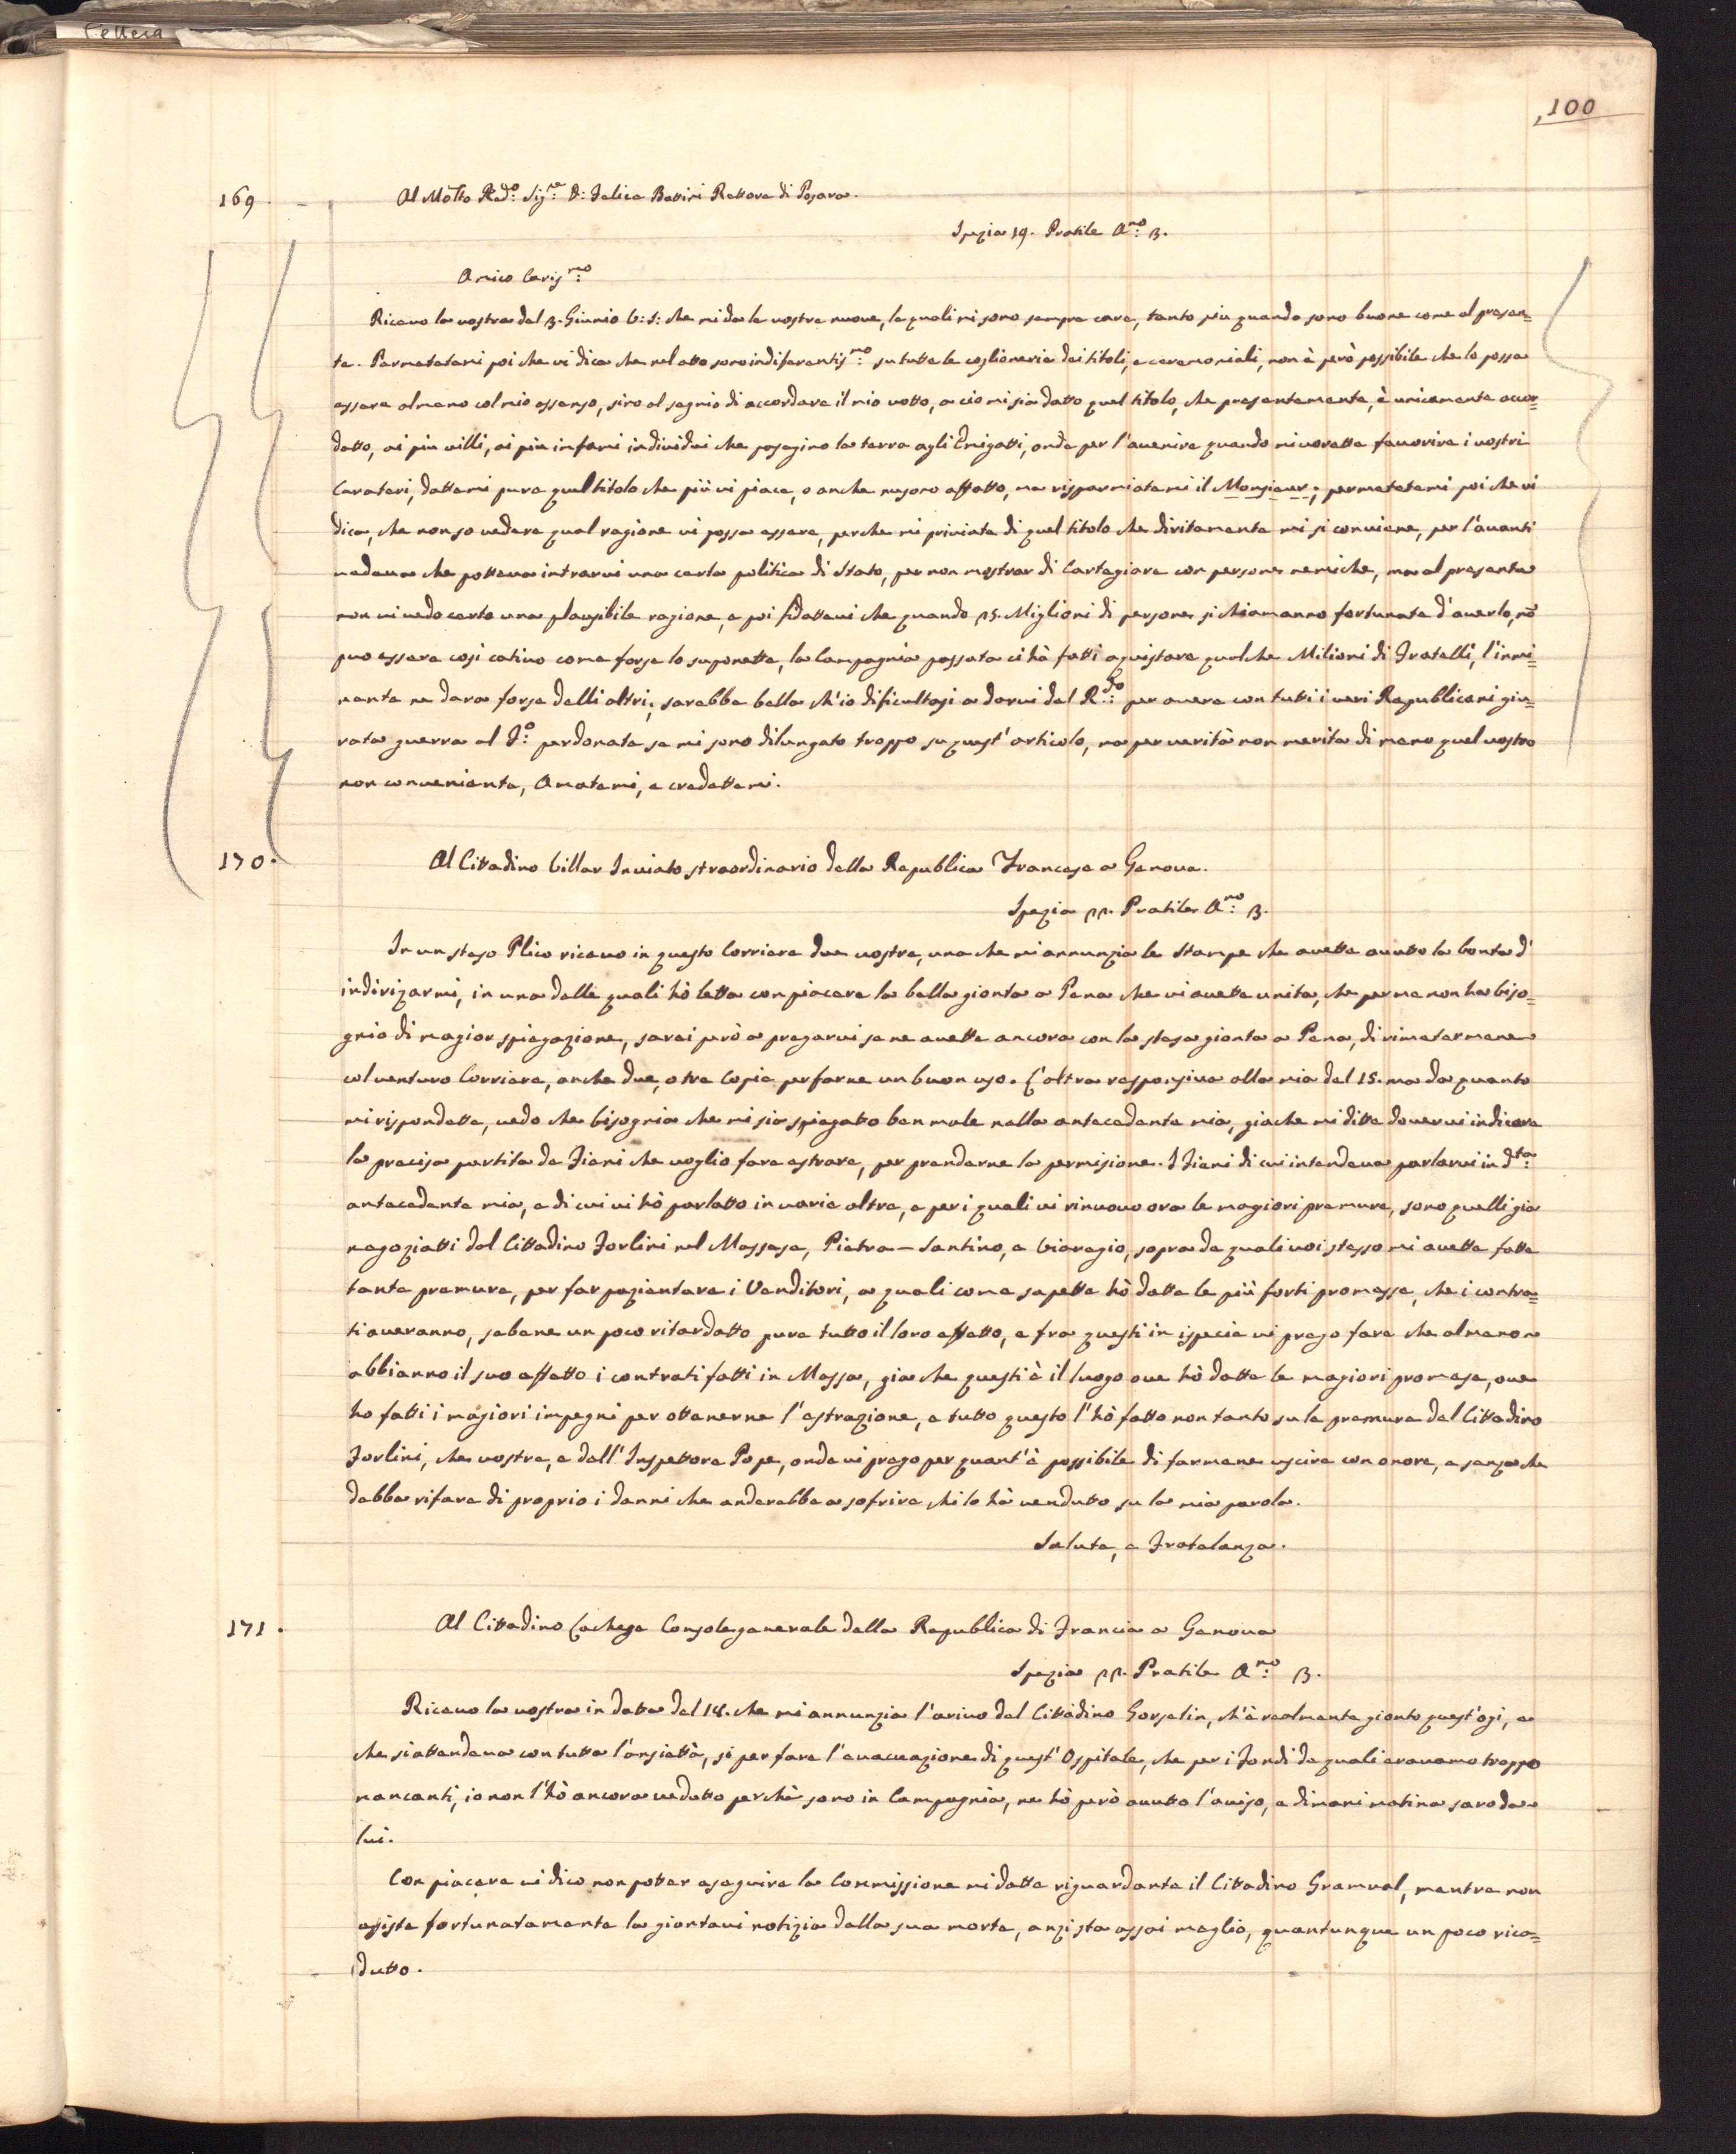 Lettera
100
169.
Al Molto Red.o Sig.re D: Felice Bettini Rettore di Posara.
Spezia 19. Pratile An.no 3.
Amico Caris.mo
Ricevo la vostra del 3. Giunio V: S: che mi da le vostre nuove, le quali mi sono sempre care, tanto più quando sono buone come al presen=
te. Permetetemi poi che vi dica che nel atto sono indiferentis.mo su tutte le coglionerie dei titoli, e ceremoniali, non è però possibile che lo possa
essere almeno col mio assenso, sino al segnio di accordare il mio votto, a cio mi sia datto quel titolo, che presentemente, è unicamente accor=
datto, ai più villi, ai più infami individui che posegino la terra agli Emigatti, onde per l'avenire quando mi vorette favorire i vostri
Carateri, dattemi pure quel titolo che più vi piace, o anche nesuno affatto, ma risparmiatemi il Monsieur; permetetemi poi che vi
dica, che non so vedere qual ragione vi possa essere, perche mi priviate di quel titolo che diritamente mi si conviene, per l'avanti
vedeva che potteva intrarvi una certa politica di Stato, per non mostrar di Cartegiare con persone nemiche, ma al presente
non vi vedo certo una plausibile ragione, e poi fidattevi che quando 25. Miglioni di persone si chiamanno fortunate d'averlo, nō
puo essere cosi cativo come forse lo suponette, la Campagnia passata ci hà fatti aquistare qualche Milioni di Fratelli, l'immi=
nente ne dara forse delli altri; sarebbe bella ch'io dificultasi a darvi del R.do per avere con tutti i veri Republicani giu=
rata guerra al D.o perdonate se mi sono dilungato troppo su quest'articolo, ma per verità non merita di meno quel vostro
non conveniente, Amatemi, e credettemi.
170.
Al Cittadino Villar Inviato straordinario della Republica Francese a Genova.
Spezia 22. Pratile An.no 3.
In un steso Plico ricevo in questo Corriere due vostre, una che mi annunzia le Stampe che avette avutto la bonta d'
indirizarmi, in una delle quali hò letta con piacere la bella gionta a Pena che vi avette unita, che per me non ha biso=
gnio di magior spiegazione, sarei però a pregarvi se ne avette ancora con la stesa gionta a Pena, di rimetermene
col venturo Corriere, anche due, o tre Copie per farne un buon uso. L'altra responsiva alla mia del 15. ma da quanto
mi rispondette, vedo che bisognia che mi sia spiegatto ben male nella antecedente mia, giache mi ditte dovervi indicare
la precisa partita de Fieni che voglio fare estrare, per prenderne la permisione. I Fieni di cui intendeva parlarvi in d.ta
antecedente mia, e di cui vi hò parlatto in varie altre, e per i quali vi rinuovo ora le magiori premure, sono quelli gia
negoziatti dal Cittadino Forlini nel Massese, Pietra-Santino, e Viaregio, sopra de quali voi stesso mi avette fatte
tante premure, per far pazientare i Venditori, a quali come sapette hò datte le più forti promesse, che i contra=
ti averanno, sebene un poco ritardatto pure tutto il loro effetto, e fra questi in ispecie vi prego fare che almeno
abbianno il suo effetto i contrati fatti in Massa, gia che questi è il luogo ove hò datte le magiori promese, ove
ho fatti i magiori impegni per ottenerne l'estrazione, e tutto questo l'hò fatto non tanto su le premure del Cittadino
Forlini, che vostre, e dell'Inspettore Pope, onde vi prego per quant'è possibile di farmene uscire con onore, e senza che
debba rifare di proprio i danni che anderebbe a sofrire chi lo hà vendutto su la mia parola.
Salute, e Fratelanza.
171.
Al Cittadino Lachese Console generale della Republica di Francia a Genova
Spezia 22. Pratile An.no 3.
Ricevo la vostra in data del 18. che mi annunzia l'arivo del Cittadino Gosselin, ch'è realmente gionto quest'ogi, e
che si attendeva con tutta l'ansietà, si per fare l'evacuazione di quest'Ospitale, che per i Fondi de quali eravamo troppo
mancanti, io non l'hò ancora vedutto perchè sono in Campagnia, ne hò però avutto l'aviso, e dimani matina saro da
lui.
Con piacere vi dico non potter eseguire la Commissione mi datte riguardante il Cittadino Gramval, mentre non
esiste fortunatamente la giontavi notizia della sua morte, anzi sta assai meglio, quantunque un poco rica=
dutto.